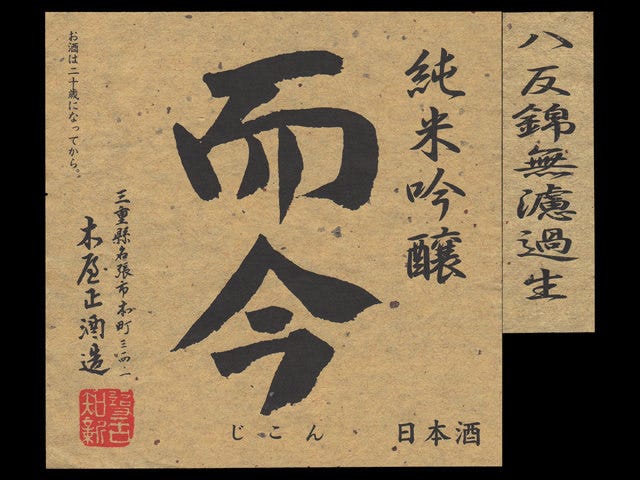 八反錦無濾過生
純米吟醸
而今
じこん
日本酒
お酒は二十歳になってから。
三重縣名張市本町三一四・一
木屋正酒造